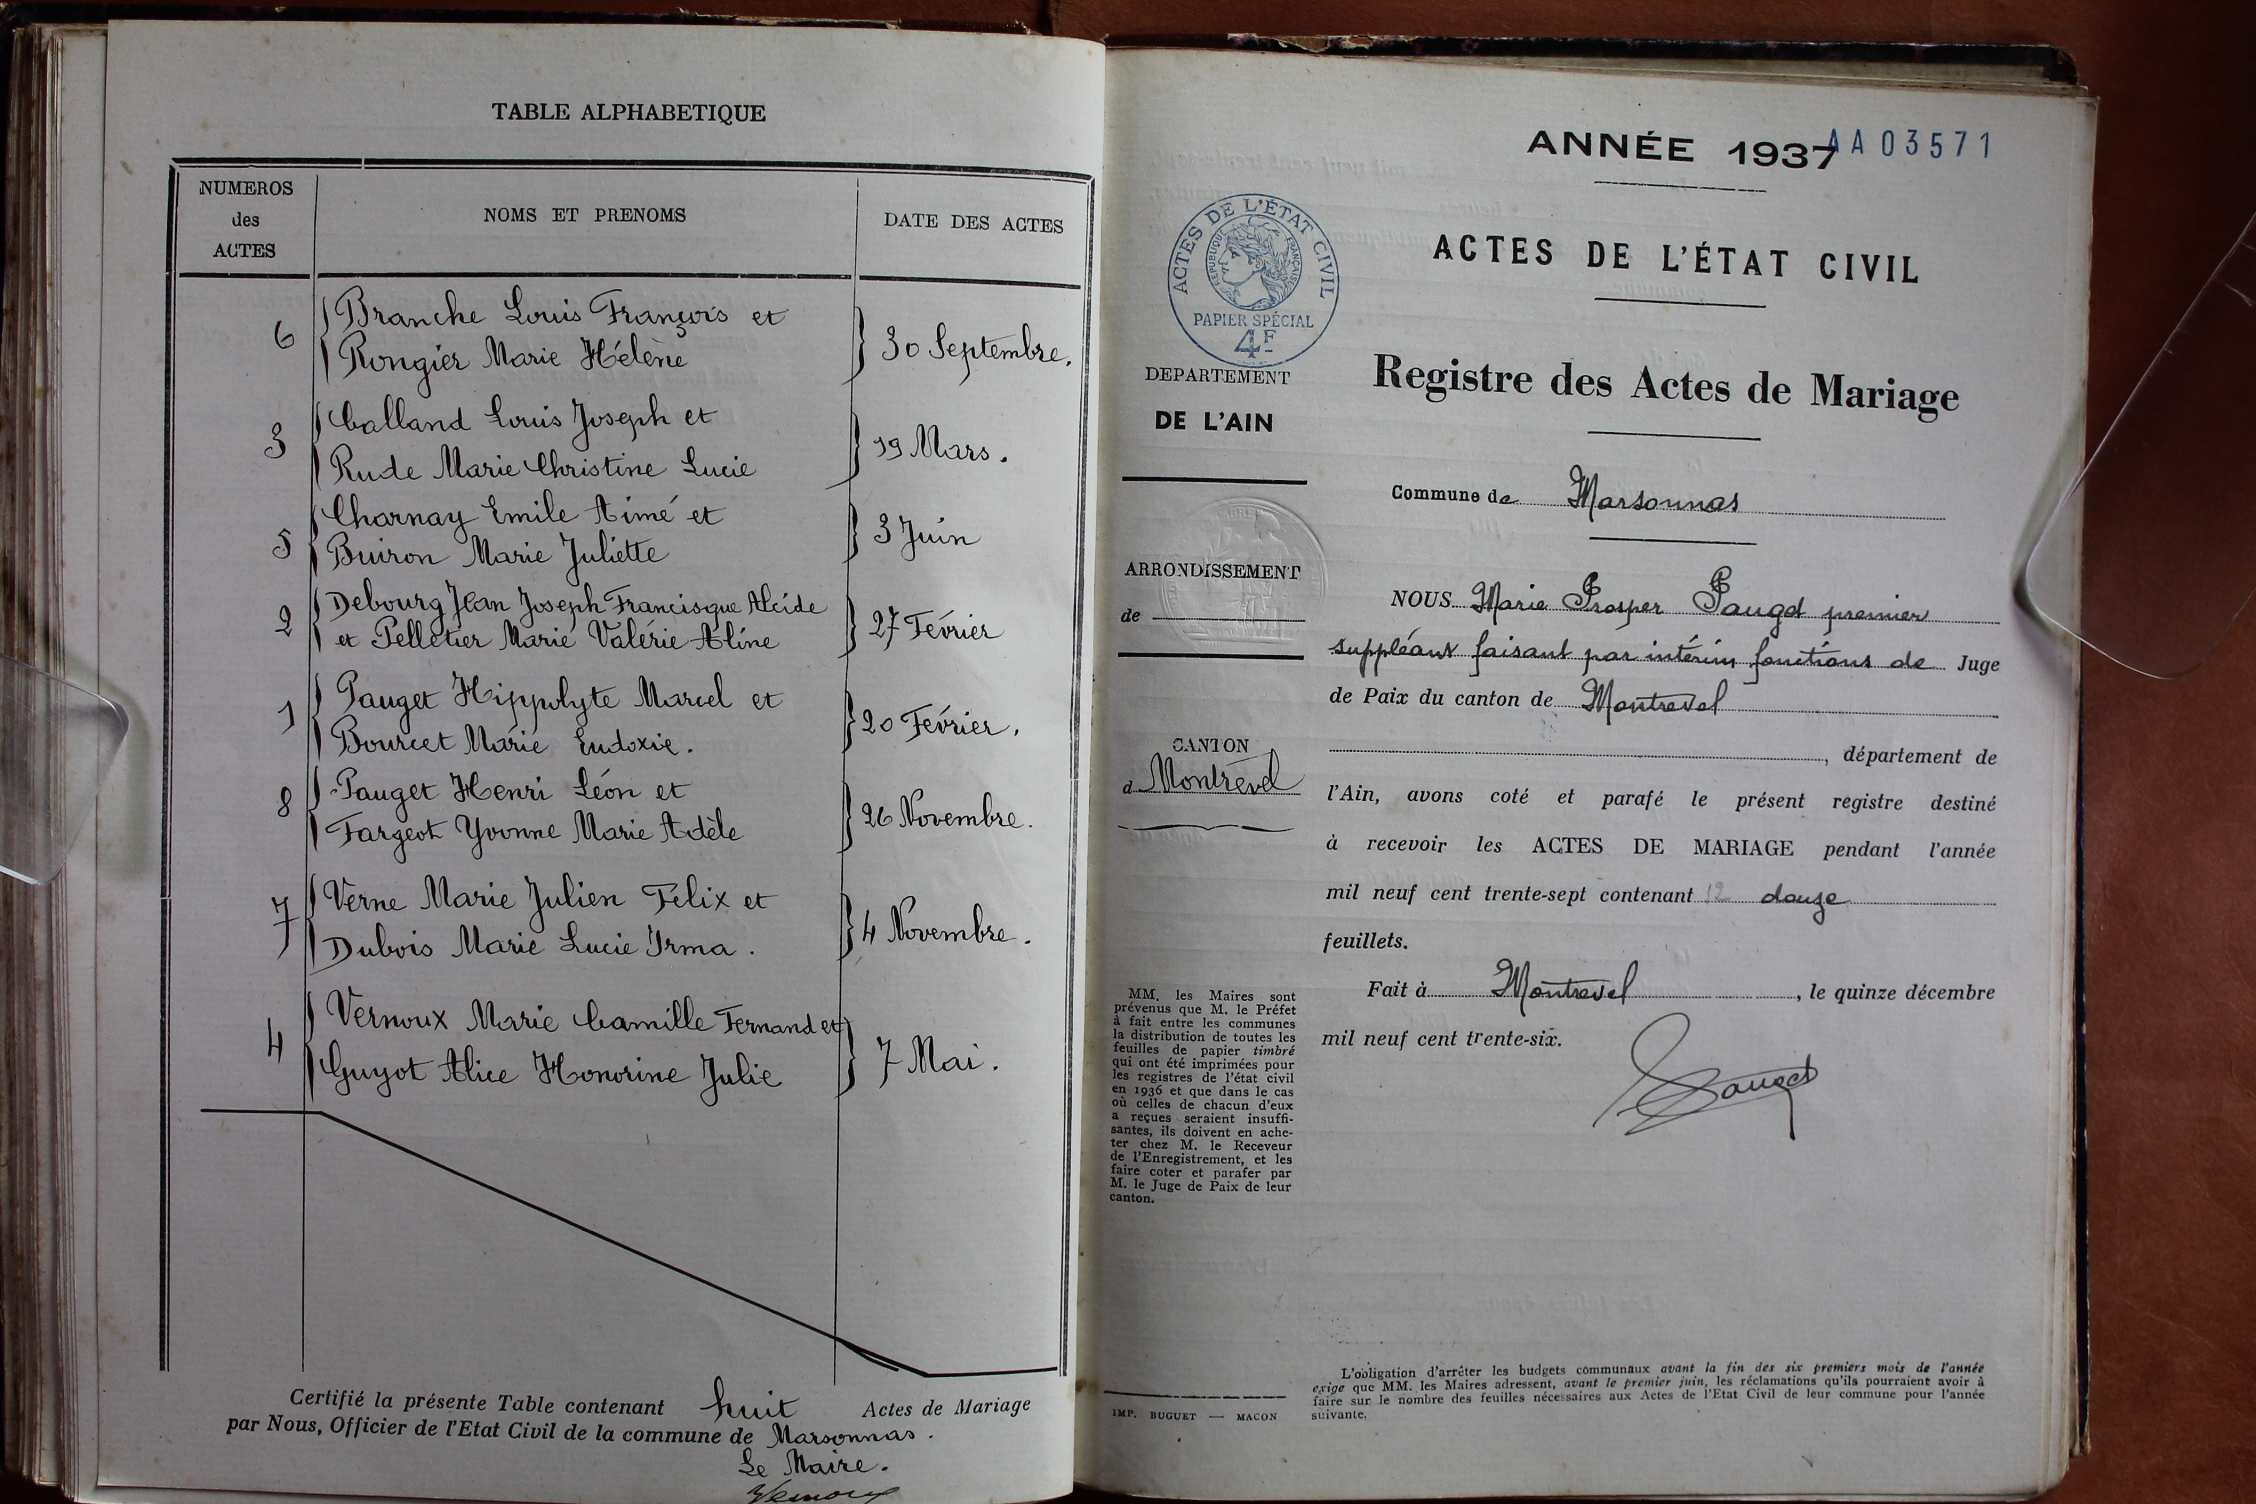 TABLE ALPHABETIQUE
NUMEROS
des
ACTES
NOMS ET PRENOMS
DATE DES ACTES
6
Branche Louis François et
Rongier Marie Hélène
30 Septembre.
3
Calland Louis Joseph et
Rude Marie Christine Lucie
19 Mars.
5
Charnay Emile Aimé et
Buiron Marie Juliette
3 Juin
2
Debourg Jean Joseph Francisque Alcide
et Pelletier Marie Valérie Aline
27 Février
1
Pauget Hippolyte Marcel et
Bourcet Marie Eudoxie.
20 Février.
8
Pauget Henri Léon et
Fargeot Yvonne Marie Adèle
26 Novembre.
7
Verne Marie Julien Félix et
Dubois Marie Lucie Irma.
4 Novembre.
4
Vernoux Marie Camille Fernand et
Guyot Alice Honorine Julie
7 Mai.
Certifié la présente Table contenant huit Actes de Mariage
par Nous, Officier de l'Etat Civil de la commune de Marsonnas.
Le Maire.
Vernoux
ANNÉE 1937
AA03571
ACTES DE L'ÉTAT CIVIL
RÉPUBLIQUE FRANÇAISE
PAPIER SPÉCIAL
4F
ACTES DE L'ÉTAT CIVIL
Registre des Actes de Mariage
DEPARTEMENT
DE L'AIN
Commune de Marsonnas
ARRONDISSEMENT
de
CANTON
d Montrevel
NOUS Marie Prosper Pauget premier
suppléant faisant par intérim fonctions de Juge
de Paix du canton de Montrevel
, département de
l'Ain, avons coté et parafé le présent registre destiné
à recevoir les ACTES DE MARIAGE pendant l'année
mil neuf cent trente-sept contenant 12 douze
feuillets.
Fait à Montrevel, le quinze décembre
mil neuf cent trente-six.
Pauget
MM. les Maires sont
prévenus que M. le Préfet
à fait entre les communes
la distribution de toutes les
feuilles de papier timbré
qui ont été imprimées pour
les registres de l'état civil
en 1936 et que dans le cas
où celles de chacun d'eux
a reçues seraient insuffi-
santes, ils doivent en ache-
ter chez M. le Receveur
de l'Enregistrement, et les
faire coter et parafer par
M. le Juge de Paix de leur
canton.
IMP. BUGUET — MACON
L'obligation d'arrêter les budgets communaux avant la fin des six premiers mois de l'année
exige que MM. les Maires adressent, avant le premier juin, les réclamations qu'ils pourraient avoir à
faire sur le nombre des feuilles nécessaires aux Actes de l'Etat Civil de leur commune pour l'année
suivante.